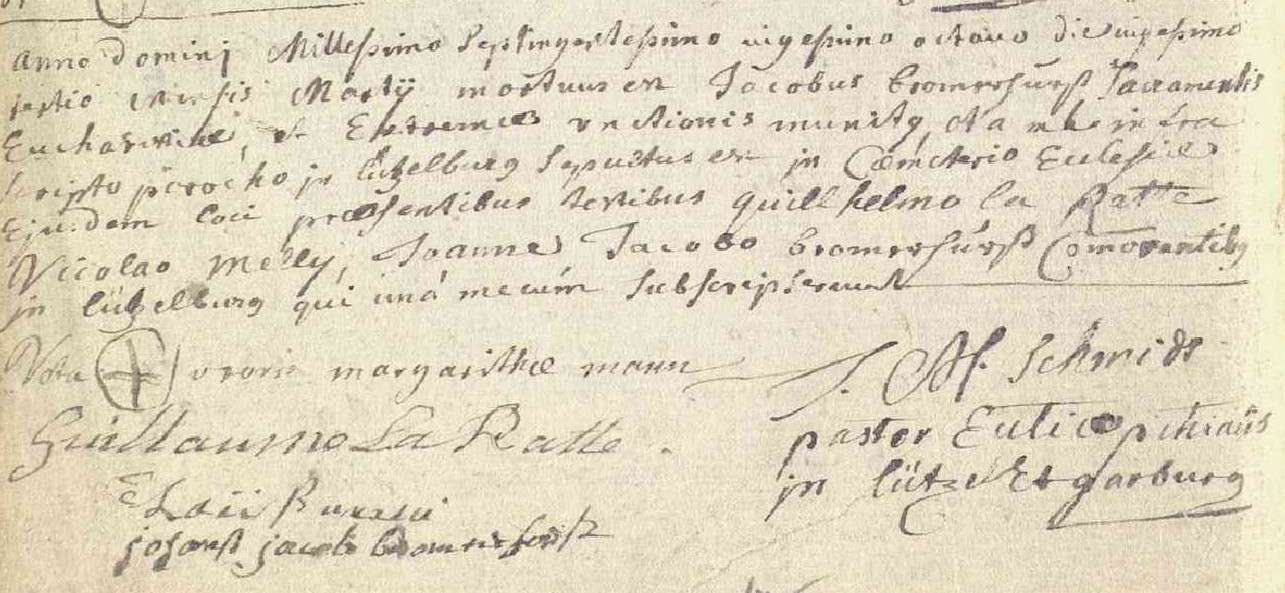 anno Dominj Millesimo Septingentesimo vigesimo octavo die vigesimo
tertio mensis Martÿ mortuus est Jacobus bromershurst Sacramentis
Eucharistiae, et Extremae vnctionis munitq, et a me infra
scripto parocho jn lützelburg Sepultus est jn Coemeterio Eclesiae
Ejusdem loci praesentibus testibus quillhelmo la Ratte
Nicolao melly, Joanne Jacobo bromershurst Comorantibq
jn lützelburg qui unà mecum Subscripserunt
Nota uxoris margarithae mann
J. M. Schmidt
Guillaume La Ratte.
pastor
jn lütze Et garburg
johanes jacob bromershorst